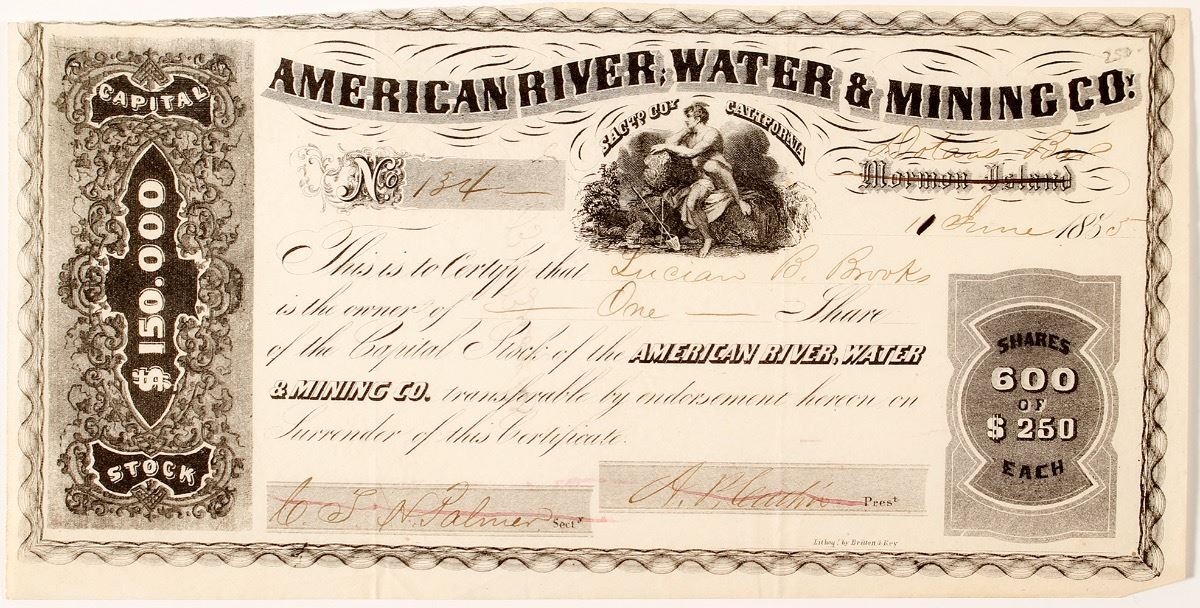 250
AMERICAN RIVER, WATER & MINING CO.Y
SAC.TO CO.Y CALIFORNIA
CAPITAL
$150.000
STOCK
No. 134
Mormon Island
11 June 1855
This is to Certify that Lucian B. Brooks
is the owner of One Share
of the Capital Stock of the AMERICAN RIVER, WATER
& MINING CO. transferable by endorsement hereon on
Surrender of this Certificate.
SHARES
600
OF
$250
EACH
C. T. H. Palmer Sect.y
A. P. Catlin Prest
Lithog. by Britton & Rey